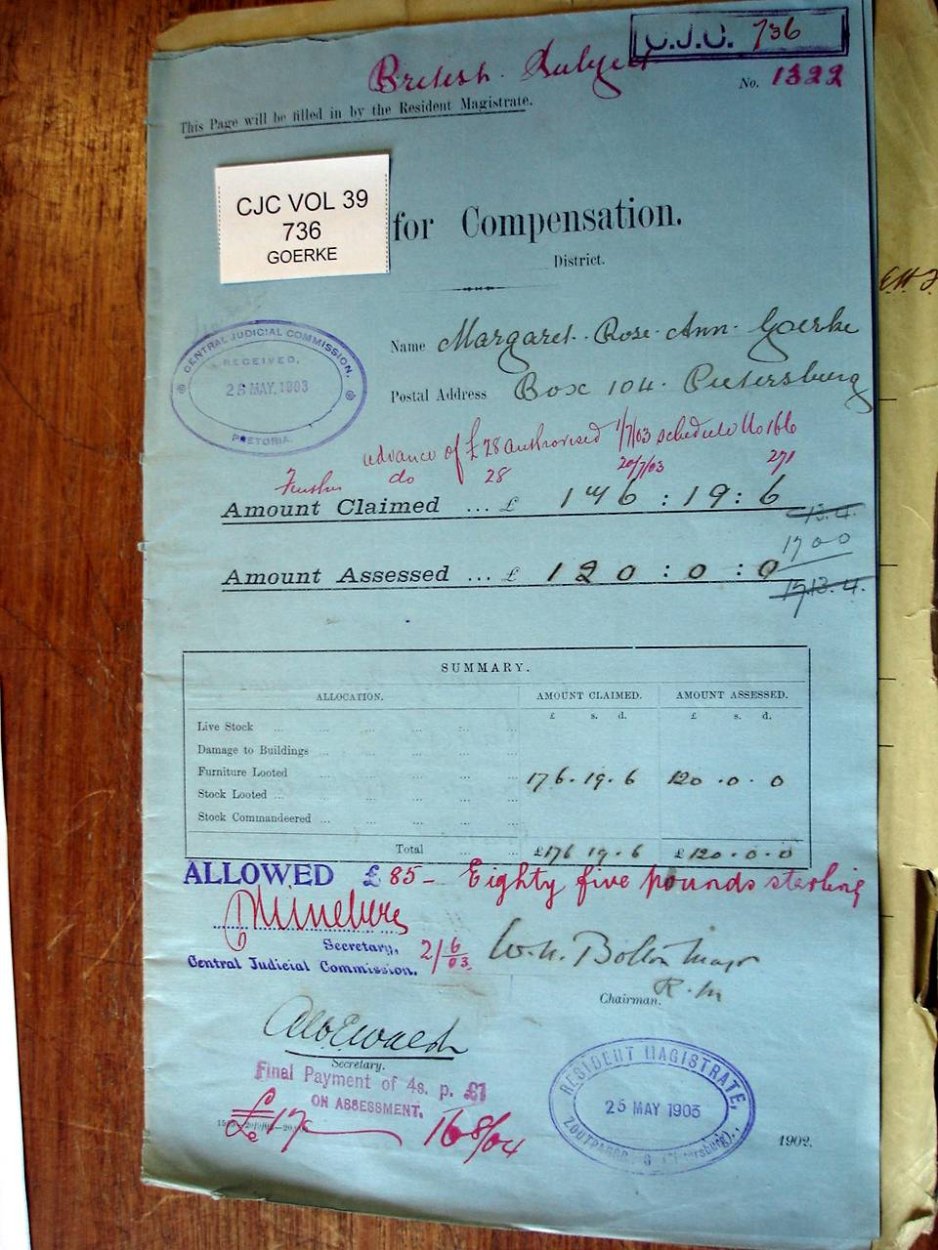 C.J.C. 736
British Subject
No. 1322
This Page will be filled in by the Resident Magistrate.
CJC VOL 39
736
GOERKE
for Compensation.
District.
CENTRAL JUDICIAL COMMISSION.
RECEIVED,
26 MAY. 1903
PRETORIA.
Name Margaret Rose Ann Goerke
Postal Address Box 104. Pietersburg
advance of £28 authorised 1/7/03 schedule No 166
Further do 28 20/7/03 271
Amount Claimed ... £ 176 : 19 : 6
13.4.
17 0 0
Amount Assessed ... £ 120 : 0 : 0
17.13.4.
SUMMARY.
ALLOCATION. AMOUNT CLAIMED. AMOUNT ASSESSED.
£ s. d. £ s. d.
Live Stock
Damage to Buildings
Furniture Looted 176. 19. 6 120 . 0 . 0
Stock Looted
Stock Commandeered
Total £176 19. 6 £120. 0. 0
ALLOWED £85 - Eighty five pounds sterling
Secretary,
Central Judicial Commission.
2/6/03
W. H. Bolton Major
R. M
Chairman.
Secretary.
Final Payment of 4s. p. £1
ON ASSESSMENT.
£17
16/8/04
RESIDENT MAGISTRATE,
25 MAY 1903
ZOUTPANSBERG (Pietersburg).
1902.